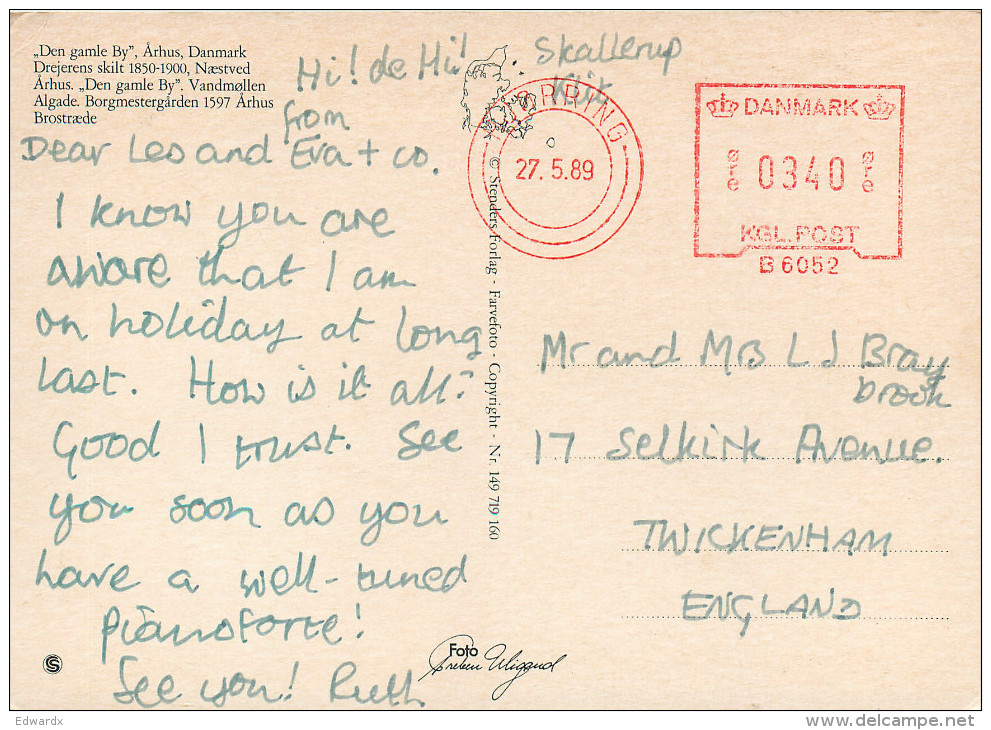 „Den gamle By”, Århus, Danmark
Drejerens skilt 1850-1900, Næstved
Århus. „Den gamle By”. Vandmøllen
Algade. Borgmestergården 1597 Århus
Brostræde
Hi! de Hi! Skallerup
Klit
from
Dear Leo and Eva + co.
I know you are
aware that I am
on holiday at long
last. How is it all?
Good I trust. See
you soon as you
have a well-tuned
pianoforte!
See you! Ruth
© Stenders Forlag - Farvefoto - Copyright - Nr. 149 719 160
27. 5.89
DANMARK
øre 0340 øre
KGL. POST
B 6052
Mr and Mrs L J Bray
brook
17 Selkirk Avenue.
TWICKENHAM
ENGLAND
Foto
S
Edwardx
www.delcampe.net